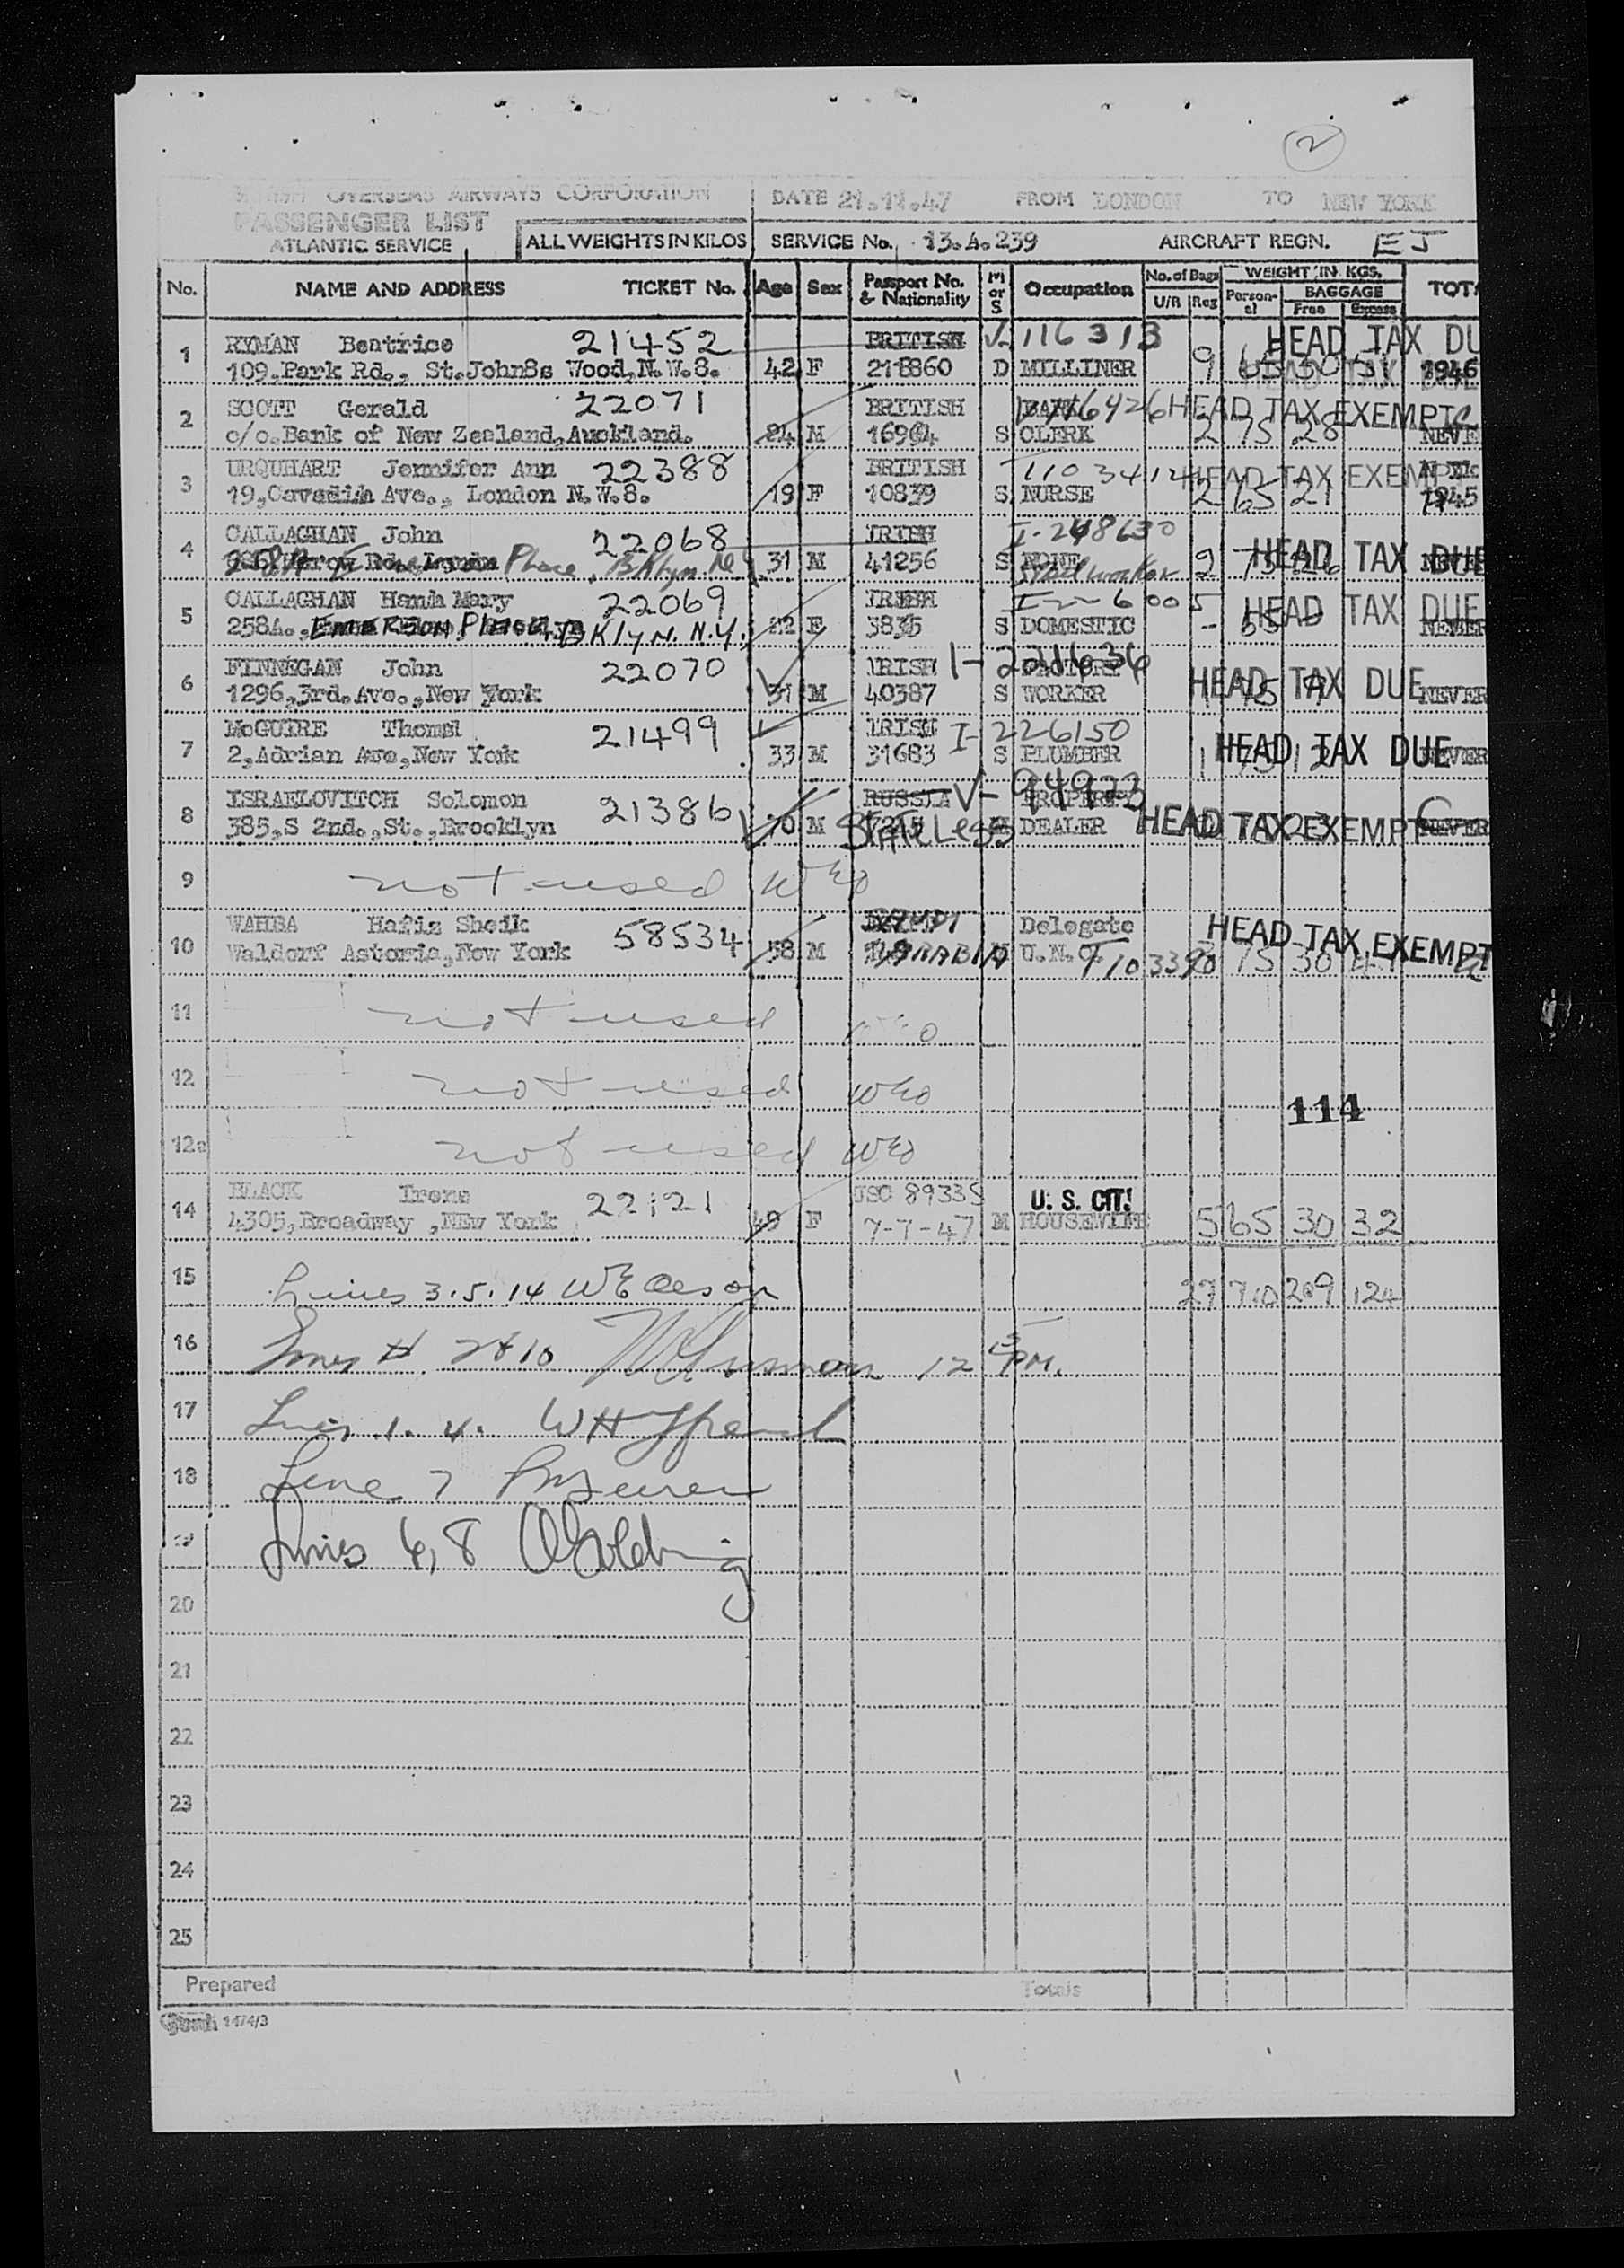 2
OVERSEAS AIRWAYS CORPORATION
PASSENGER LIST
ATLANTIC SERVICE
ALL WEIGHTS IN KILOS
DATE 21.11.47 FROM LONDON TO NEW YORK
SERVICE No. 13.4.239 AIRCRAFT REGN. EJ
No. NAME AND ADDRESS TICKET No. Age Sex Passport No. & Nationality M or S Occupation No. of Bags U/R Reg WEIGHT IN KGS. Person-al BAGGAGE Free Excess
1 RYMAN Beatrice 21452 BRITISH 116313 HEAD TAX DU
109,Park Rd., St.John8s Wood,N.W.8. 42 F 218860 D MILLINER 9 1946
2 SCOTT Gerald 22071 BRITISH HEAD TAX EXEMPT
c/o.Bank of New Zealand,Auckland. 24 M S CLERK 2 75 28 NEVE
3 URQUHART Jennifer Ann 22388 BRITISH HEAD TAX EXEMPT
19, Ave., London N.W.8. 19 F 10839 S NURSE 2 65 21 1945
4 CALLAGHAN John 22068 IRISH I-248630
Place, Bklyn N.Y. 31 M 41256 S NONE 2 HEAD TAX DUE
5 CALLAGHAN Hanah Mary 22069 IRISH HEAD TAX DUE
258A., EMERSON PLACE, BKlyN. N.Y. 22 F 3835 S DOMESTIC - 55 NEVER
6 FINNEGAN John 22070 IRISH I-221636
1296,3rd.Ave.,New York 31 M 40387 S WORKER HEAD TAX DUE NEVER
7 McGUIRE Thomsl 21499 IRISH I-226150
2,Adrian Ave,New York 33 M 31683 S PLUMBER 1 HEAD TAX DUE NEVER
8 ISRAELOVITCH Solomon 21386 RUSSIA V-94923 PROPERTY
385,S 2nd.,St.,Brooklyn 70 M STATELESS DEALER HEAD TAX EXEMPT NEVER
9 not used WEO
10 WAHBA Hafiz Sheik 58534 SAUDI Delegate HEAD TAX EXEMPT
Waldorf Astoria,New York 58 M ARABIA U.N.O. 75 30
11 not used
12 not used WEO
114
12a not used WEO
14 BLACK Irene 22121 USC 89335 U. S. CIT!
4305,Broadway ,NEw York 49 F 7-7-47 M HOUSEWIFE 5 65 30 32
15 Lines 3.5.14 27 710 209 124
16 2 & 10 12 PM.
17 Lines 1. 4.
18 Line 7
19 Lines 6, 8 Golding
20
21
22
23
24
25
Prepared Totals
1474/3